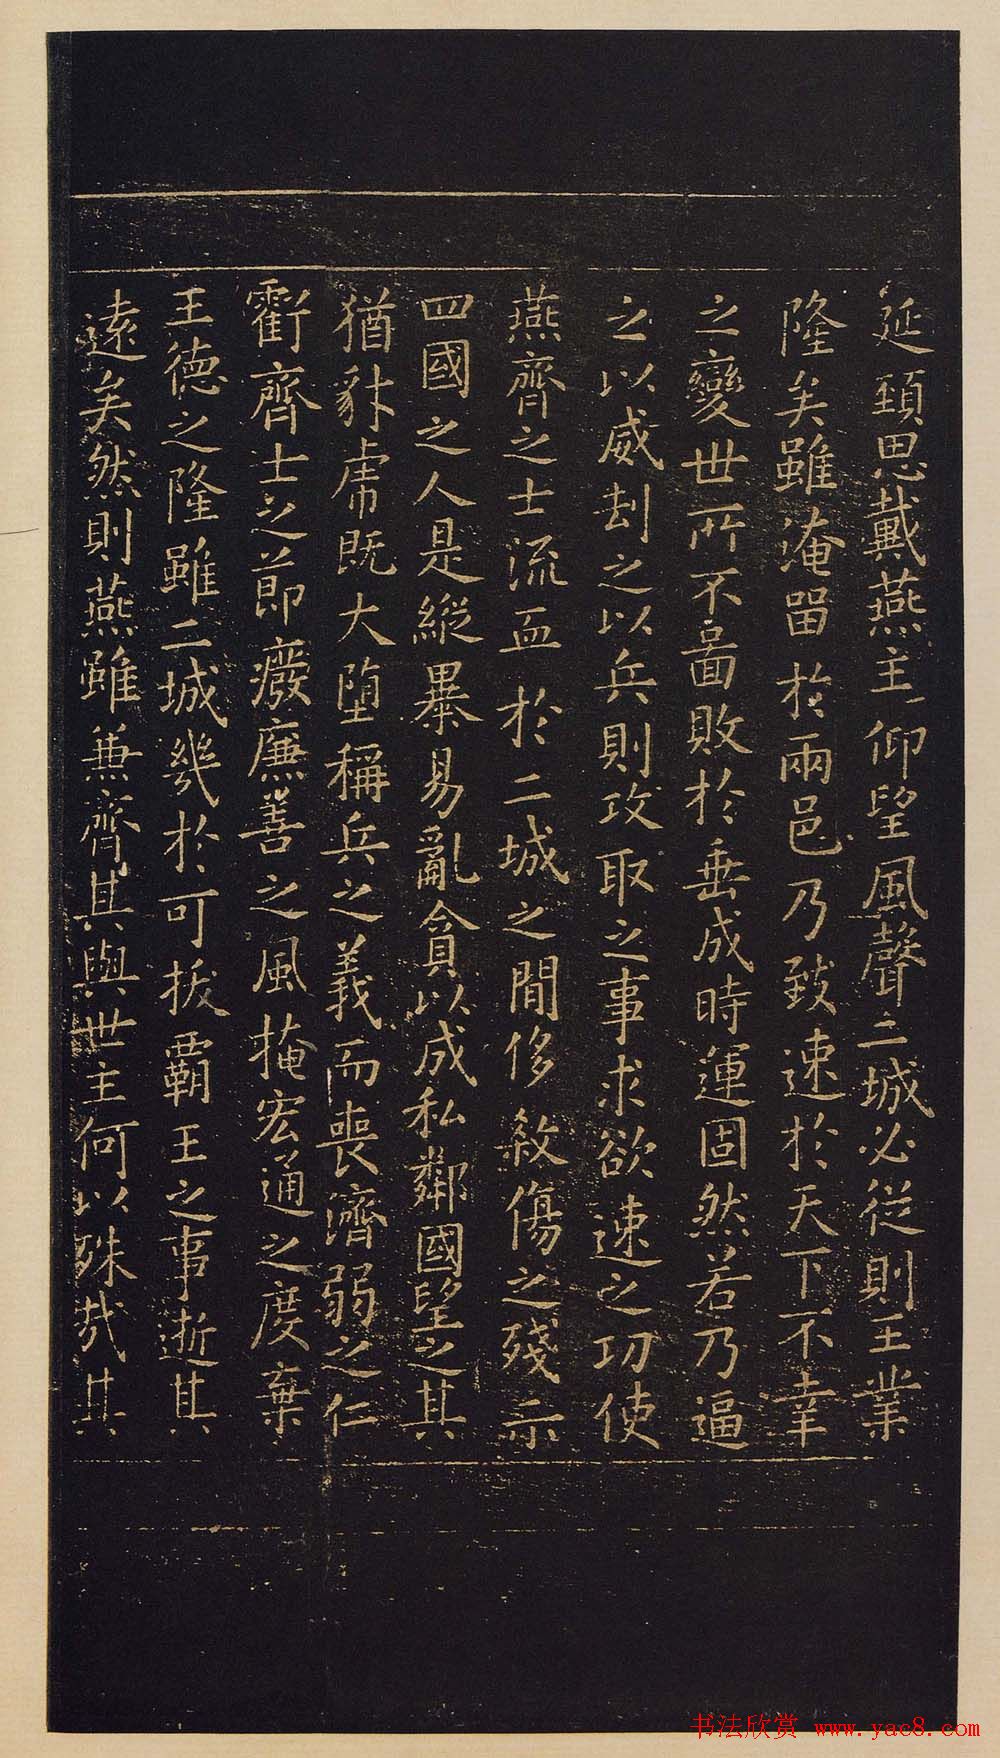 延頸思戴燕主仰望風聲二城必從則王業
隆矣雖淹留於兩邑乃致速於天下不幸
之變世所不啚敗於垂成時運固然若乃逼
之以威刧之以兵則攻取之事求欲速之功使
燕齊之士流血於二城之間侈敘傷之殘示
四國之人是縱暴易亂貪以成私鄰國望之其
猶豺虎既大墮稱兵之義而喪濟弱之仁
虧齊士之節廢廉善之風掩宏通之度棄
王德之隆雖二城幾於可拔霸王之事逝其
遠矣然則燕雖兼齊其與世主何以殊哉其
书法欣赏 www.yac8.com